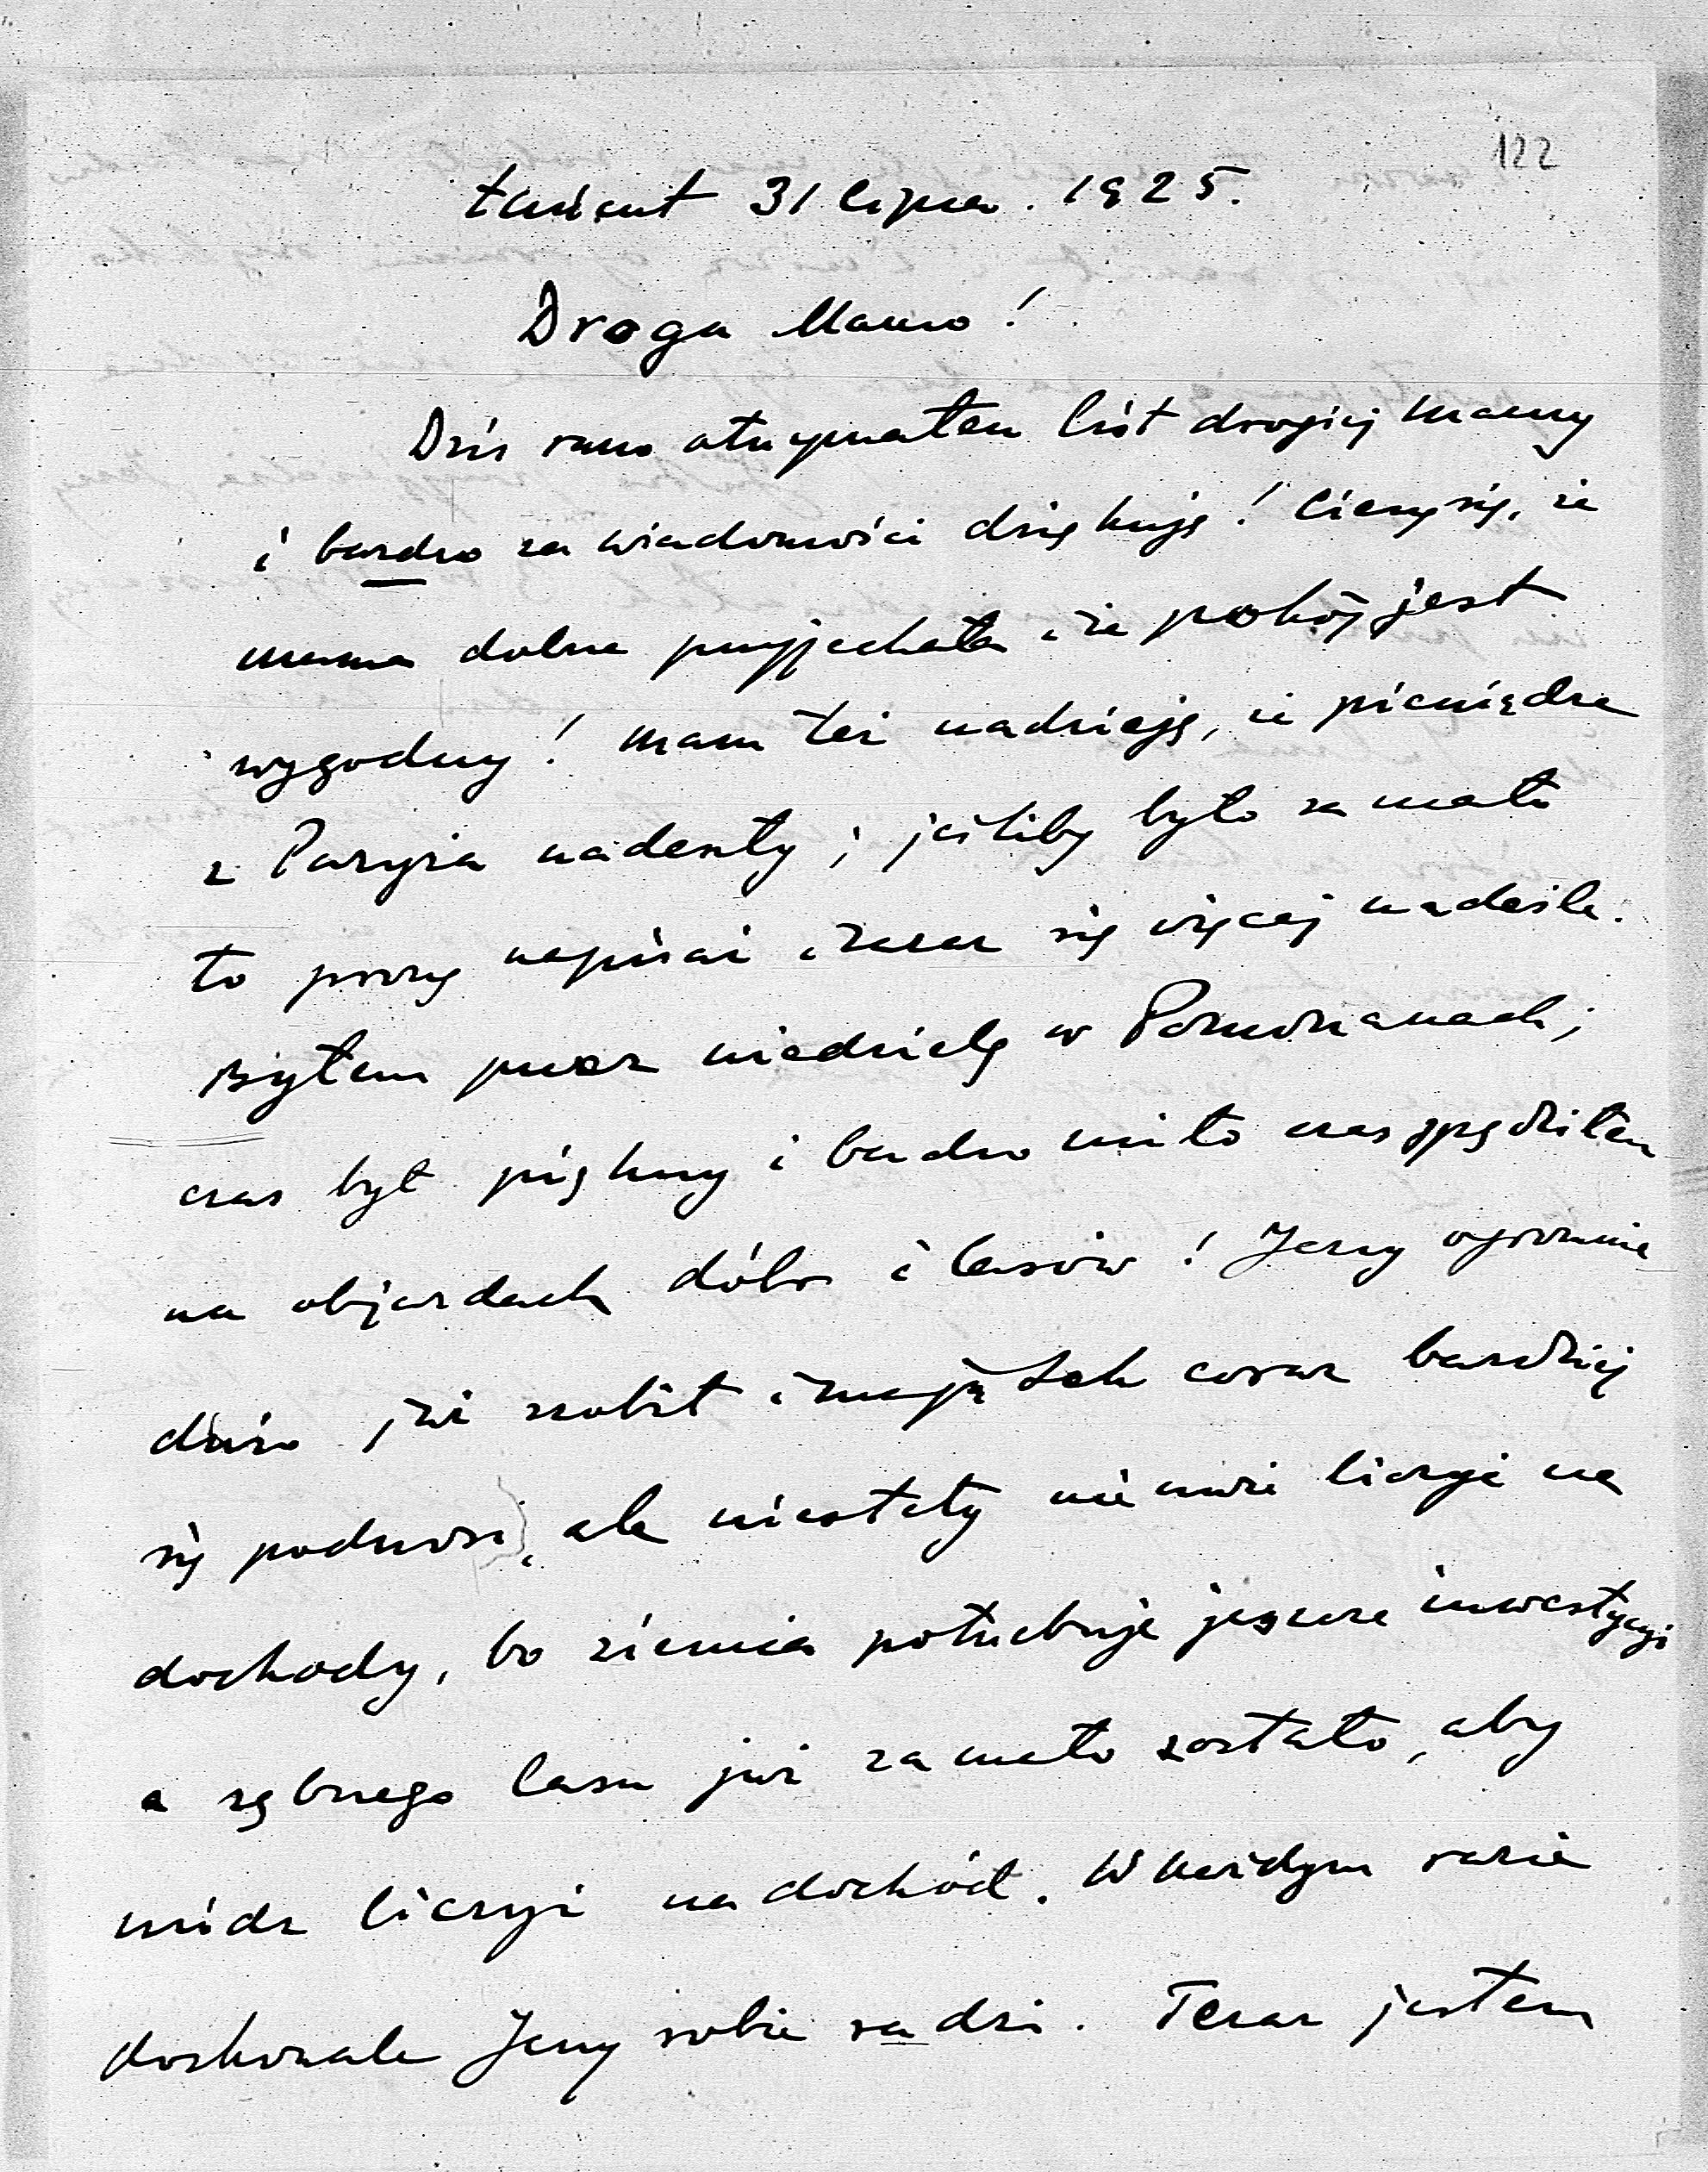 122
Łańcut 31 lipca. 1925.
Droga Mamo!
Dziś rano otrzymałem list drogiej Mamy
i bardzo za wiadomości dziękuję! Cieszę się, że
mama dobrze przyjechała i że pokój jest
wygodny! Mam też nadzieję, że pieniądze
z Paryża nadeszły; jeśliby było za mało
to proszę napisać i zaraz się więcej nadeśle.
Byłem przez niedzielę w Pomorzanach;
czas był piękny i bardzo miło czas spędziłem
na objazdach dóbr i lasów! Jerzy ogromnie
dużo już zrobił i majątek coraz bardziej
się podnosi, ale niestety nie może liczyć na
dochody, bo ziemia potrzebuje jeszcze inwestycyi
a rębnego lasu już za mało zostało, aby
módz liczyć na dochód. W każdym razie
doskonale Jerzy sobie radzi. Teraz jestem